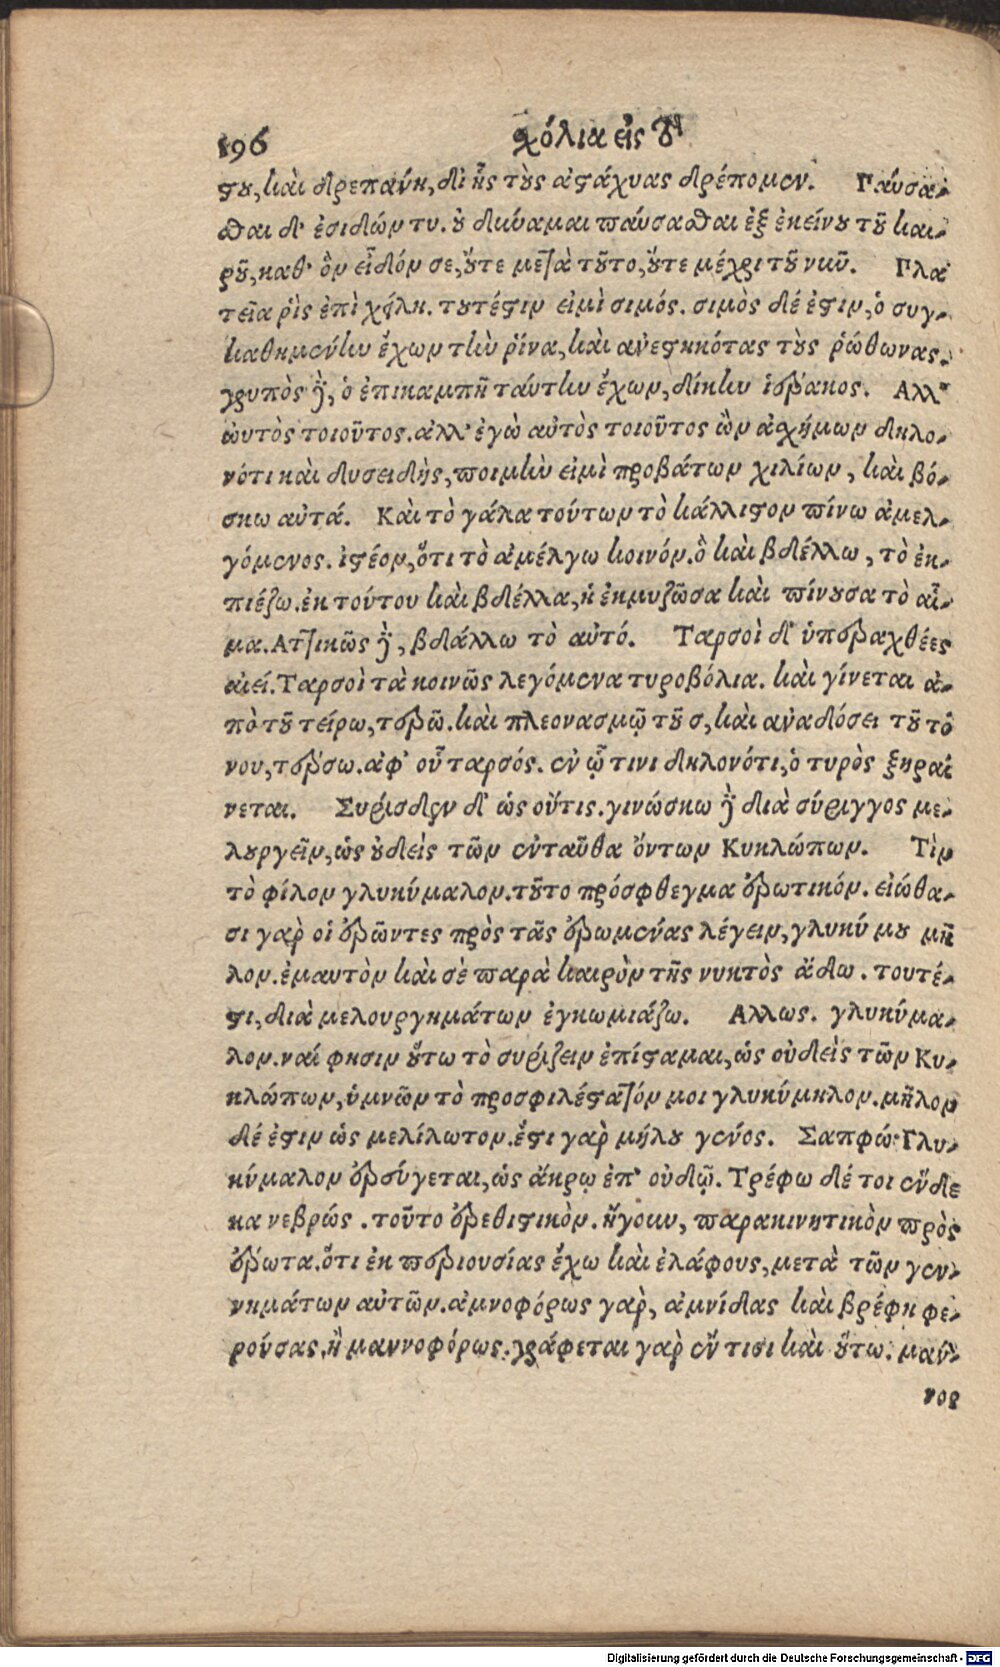 196 χόλια εἰς θ
ςου, καὶ δρεπάνη, δι' ἧς τοὺς ἀςάχυας δρέπομεν. Παύσα-
σθαι δ' ἐσιδών τυ. οὐ δύναμαι παύσασθαι ἐξ ἐκείνου τοῦ και-
ροῦ, καθ' ὃν εἶδόν σε, οὔτε μετὰ τοῦτο, οὔτε μέχρι τοῦ νῦν. Πλα
τεῖα ῥὶς ἐπὶ χείλη. τουτέςιν εἰμὶ σιμός. σιμὸς δέ ἐςιν, ὁ συγ-
καθημένην ἔχων τὴν ῥίνα, καὶ ἀνεςηκότας τοὺς ῥώθωνας.
γρυπὸς δὲ, ὁ ἐπικαμπῆ ταύτην ἔχων, δίκην ἱέρακος. Αλλ'
ὠυτὸς τοιοῦτος. ἀλλ' ἐγὼ αὐτὸς τοιοῦτος ὢν ἀχήμων δηλο-
νότι καὶ δυσειδὴς, ποιμὴν εἰμὶ προβάτων χιλίων, καὶ βό-
σκω αὐτά. Καὶ τὸ γάλα τούτων τὸ κάλλιςον πίνω ἀμελ-
γόμενος. ἰςέον, ὅτι τὸ ἀμέλγω κοινόν. ὃ καὶ βδέλλω, τὸ ἐκ-
πιέζω. ἐκ τούτου καὶ βδέλλα, ἡ ἐκμυζῶσα καὶ πίνουσα τὸ αἷ-
μα. Αττικῶς δὲ, βδάλλω τὸ αὐτό. Ταρσοὶ δ' ὑπεραχθέες
αἰεί. Ταρσοὶ τὰ κοινῶς λεγόμενα τυροβόλια. καὶ γίνεται ἀ-
πὸ τοῦ τείρω, τερῶ. καὶ πλεονασμῷ τοῦ σ, καὶ ἀναδόσει τοῦ τό
νου, τέρσω. ἀφ' οὗ ταρσός. ἐν ᾧ τινι δηλονότι, ὁ τυρὸς ξηραί
νεται. Συρίσδεν δ' ὡς οὔτις. γινώσκω δὲ διὰ σύριγγος με-
λουργεῖν, ὡς οὐδεὶς τῶν ἐνταῦθα ὄντων Κυκλώπων. Τὶν
τὸ φίλον γλυκύμαλον. τοῦτο πρόσφθεγμα ἐρωτικόν. εἰώθα-
σι γὰρ οἱ ἐρῶντες πρὸς τὰς ἐρωμένας λέγειν, γλυκύ μου μῆ
λον. ἐμαυτὸν καὶ σὲ παρὰ καιρὸν τῆς νυκτὸς ᾄδω. τουτέ-
ςι, διὰ μελουργημάτων ἐγκωμιάζω. Αλλως. γλυκύμα-
λον. ναί φησιν οὕτω τὸ συρίζειν ἐπίςαμαι, ὡς οὐδεὶς τῶν Κυ-
κλώπων, ὑμνῶν τὸ προσφιλέςατόν μοι γλυκύμηλον. μῆλον
δέ ἐςιν ὡς μελίλωτον. ἔςι γὰρ μήλου γένος. Σαπφώ. Γλυ-
κύμαλον ἐρεύγεται, ὡς ἄκρῳ ἐπ' οὐδῷ. Τρέφω δέ τοι ἕνδε
κα νεβρώς. τοῦτο ἐρεθιςικὸν. ἤγουν, παρακινητικὸν πρὸς
ἔρωτα. ὅτι ἐκ περιουσίας ἔχω καὶ ἐλάφους, μετὰ τῶν γεν-
νημάτων αὐτῶν. ἀμνοφόρως γὰρ, ἀμνίδας καὶ βρέφη φε-
ρούσας. ἢ μαννοφόρως. γράφεται γὰρ ἔν τισι καὶ οὕτω. μάν-
νος